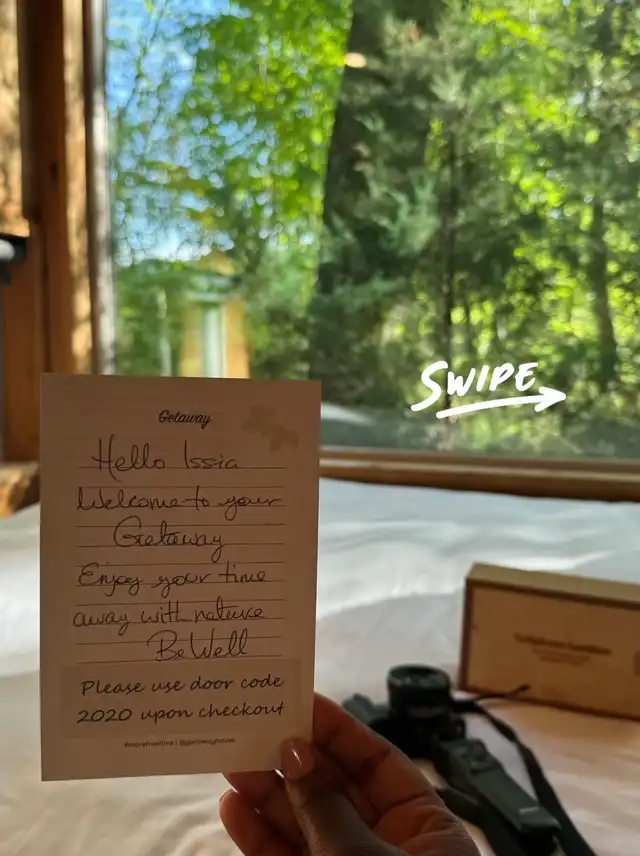 SWIPE
Getaway
Hello Issia
Welcome to your
Getaway
Enjoy your time
away with nature
Be Well
Please use door code
2020 upon checkout
#morefreetime | @getawayhouse